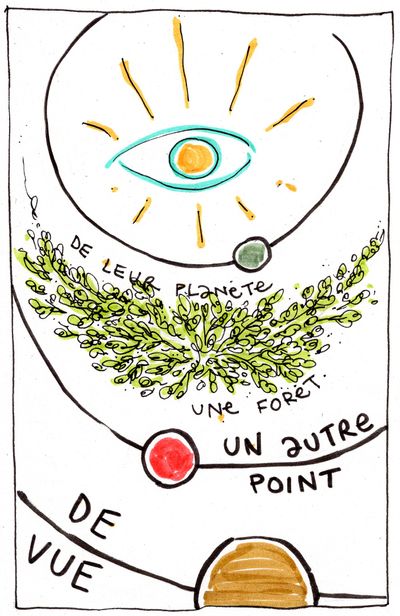 DE LEUR PLANÈTE
UNE FORÊT.
UN AUTRE
POINT
DE
VUE